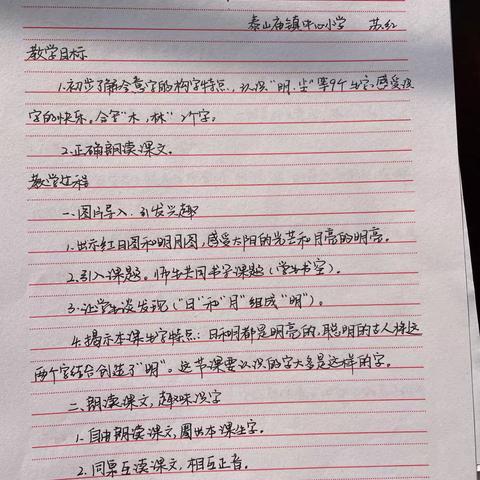 泰山庙镇中心小学 苏红
教学目标
1.初步了解会意字的构字特点,认识“明、尘”等9个生字,感受识
字的快乐。会写“木、林”2个字。
2.正确朗读课文。
教学过程
一、图片导入,引发兴趣
1.出示红日图和明月图,感受太阳的光芒和月亮的明亮。
2.引入课题。师生共同书写课题(学生书空)。
3.让学生谈发现(“日”和“月”组成“明”)。
4.揭示本课生字特点:日和月都是明亮的,聪明的古人将这
两个字结合创造了“明”。这节课要认识的字大多是这样的字。
二、朗读课文,趣味识字
1.自由朗读课文,圈出本课生字。
2.同桌互读课文,相互正音。